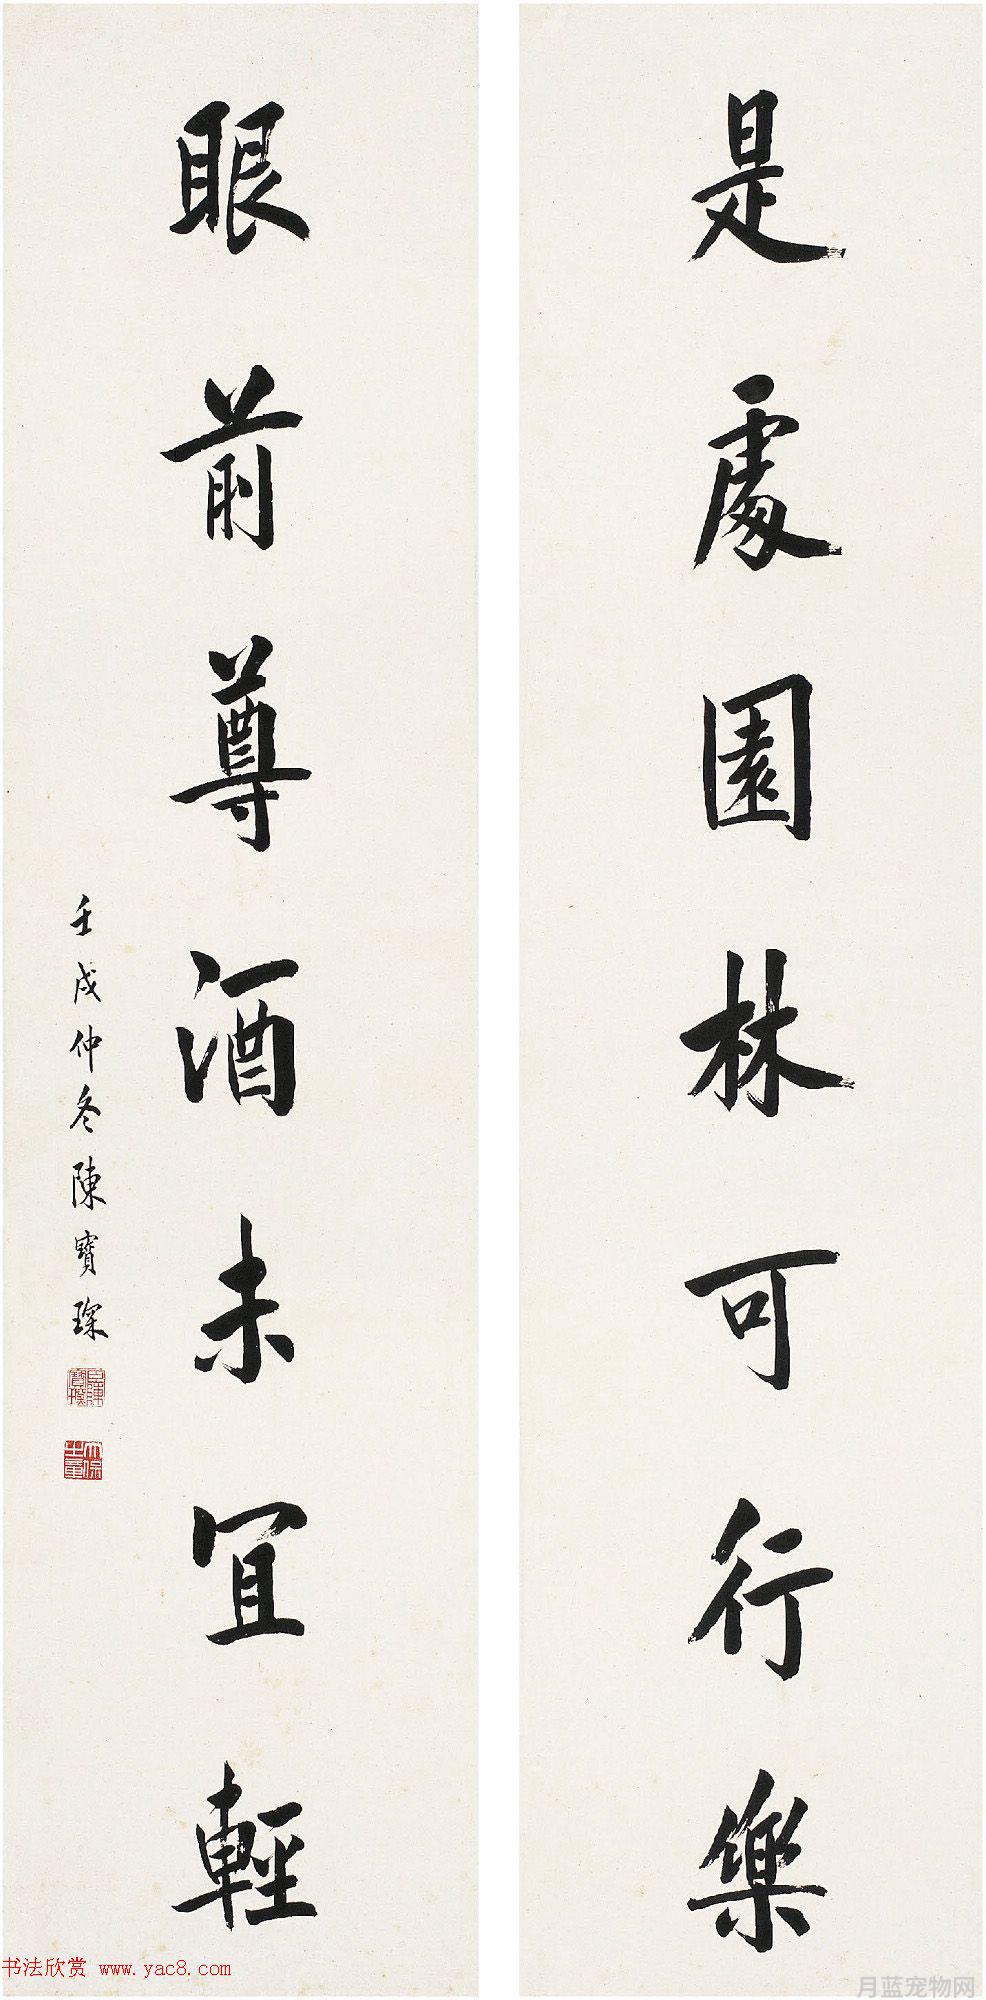 是處園林可行樂
眼前尊酒未宜輕
壬戌仲冬陳寶琛
书法欣赏 www.yac8.com
月蓝宠物网